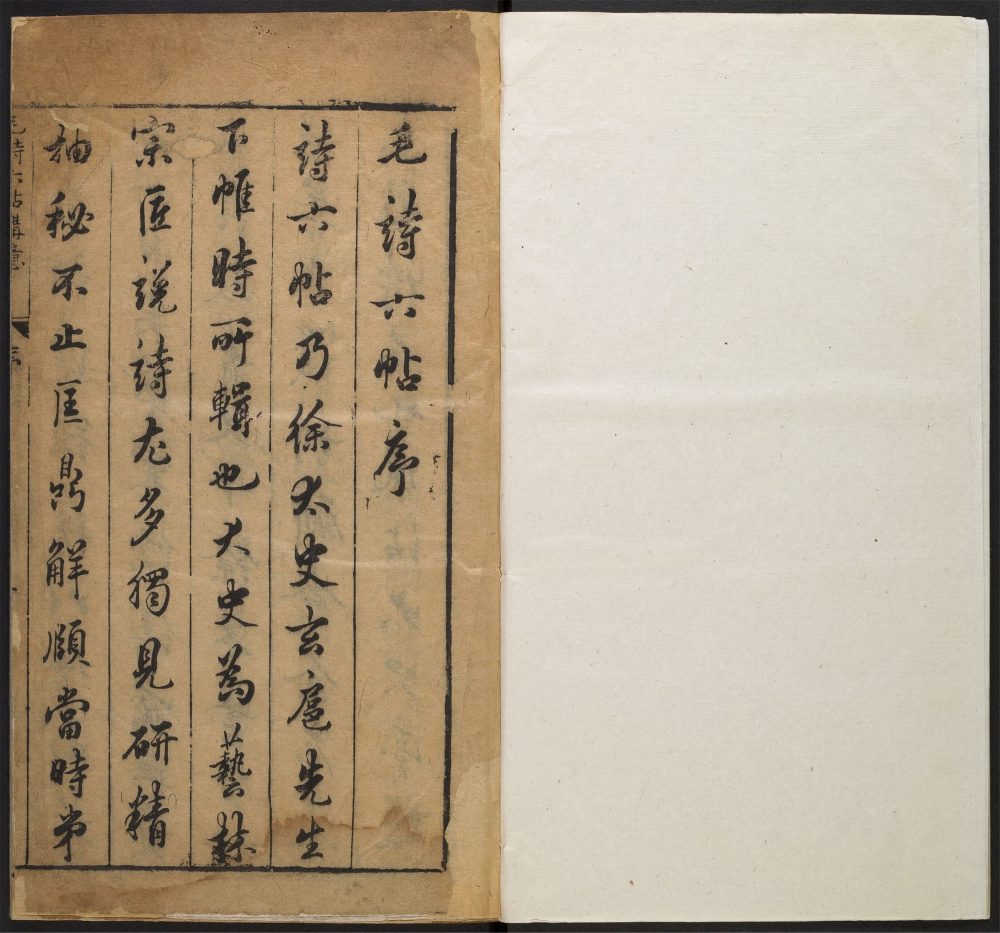 毛詩六帖序
詩六帖乃徐太史玄扈先生
下帷時所輯也太史為藝林
宗匠説詩尤多獨見研精
抽秘不止匡鼎解頤當時弟
毛詩六帖講意